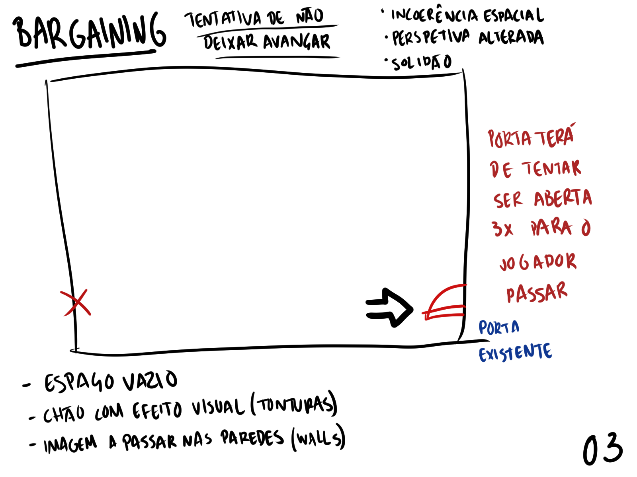 BARGAINING
TENTATIVA DE NÃO
DEIXAR AVANÇAR
• INCOERÊNCIA ESPACIAL
• PERSPETIVA ALTERADA
• SOLIDÃO
PORTA TERÁ
DE TENTAR
SER ABERTA
3X PARA O
JOGADOR
PASSAR
PORTA
EXISTENTE
- ESPAÇO VAZIO
- CHÃO COM EFEITO VISUAL (TONTURAS)
- IMAGEM A PASSAR NAS PAREDES (WALLS)
03